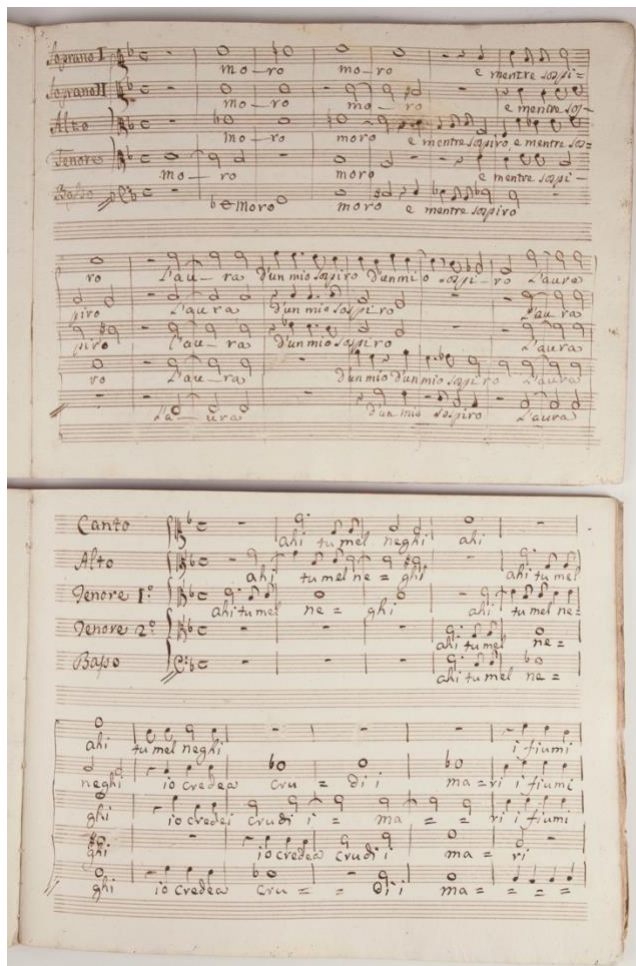 Soprano I
mo-ro mo-ro e mentre sospi=
Soprano II
mo-ro mo-ro e mentre sos-
Alto
mo-ro moro e mentre sospiro, e mentre sos=
Tenore
mo-ro moro e mentre sospi-
Basso
moro moro e mentre sospiro
ro L'au-ra d'un mio sospiro d'un mio sospi-ro L'aura
piro L'aura d'un mio sospiro L'aura
piro L'au-ra d'un mio sospiro L'aura
ro L'au-ra d'un mio d'un mio sospiro L'aura
L'a-ura d'un mio sospiro L'aura
Canto
ahi tu mel neghi ahi
Alto
ahi tu mel ne= ghi ahi tu mel
Tenore 1.º
ahi tu mel ne= ghi ahi tu mel ne=
Tenore 2.º
ahi tu mel ne=
Basso
ahi tu mel ne=
ahi tu mel neghi i fiumi
neghi io credea cru= di i ma=ri i fiumi
ghi io credei crudi i= ma= = ri i fiumi
ghi io credea crudi i ma= ri
ghi io credea cru= = di i ma= = = =